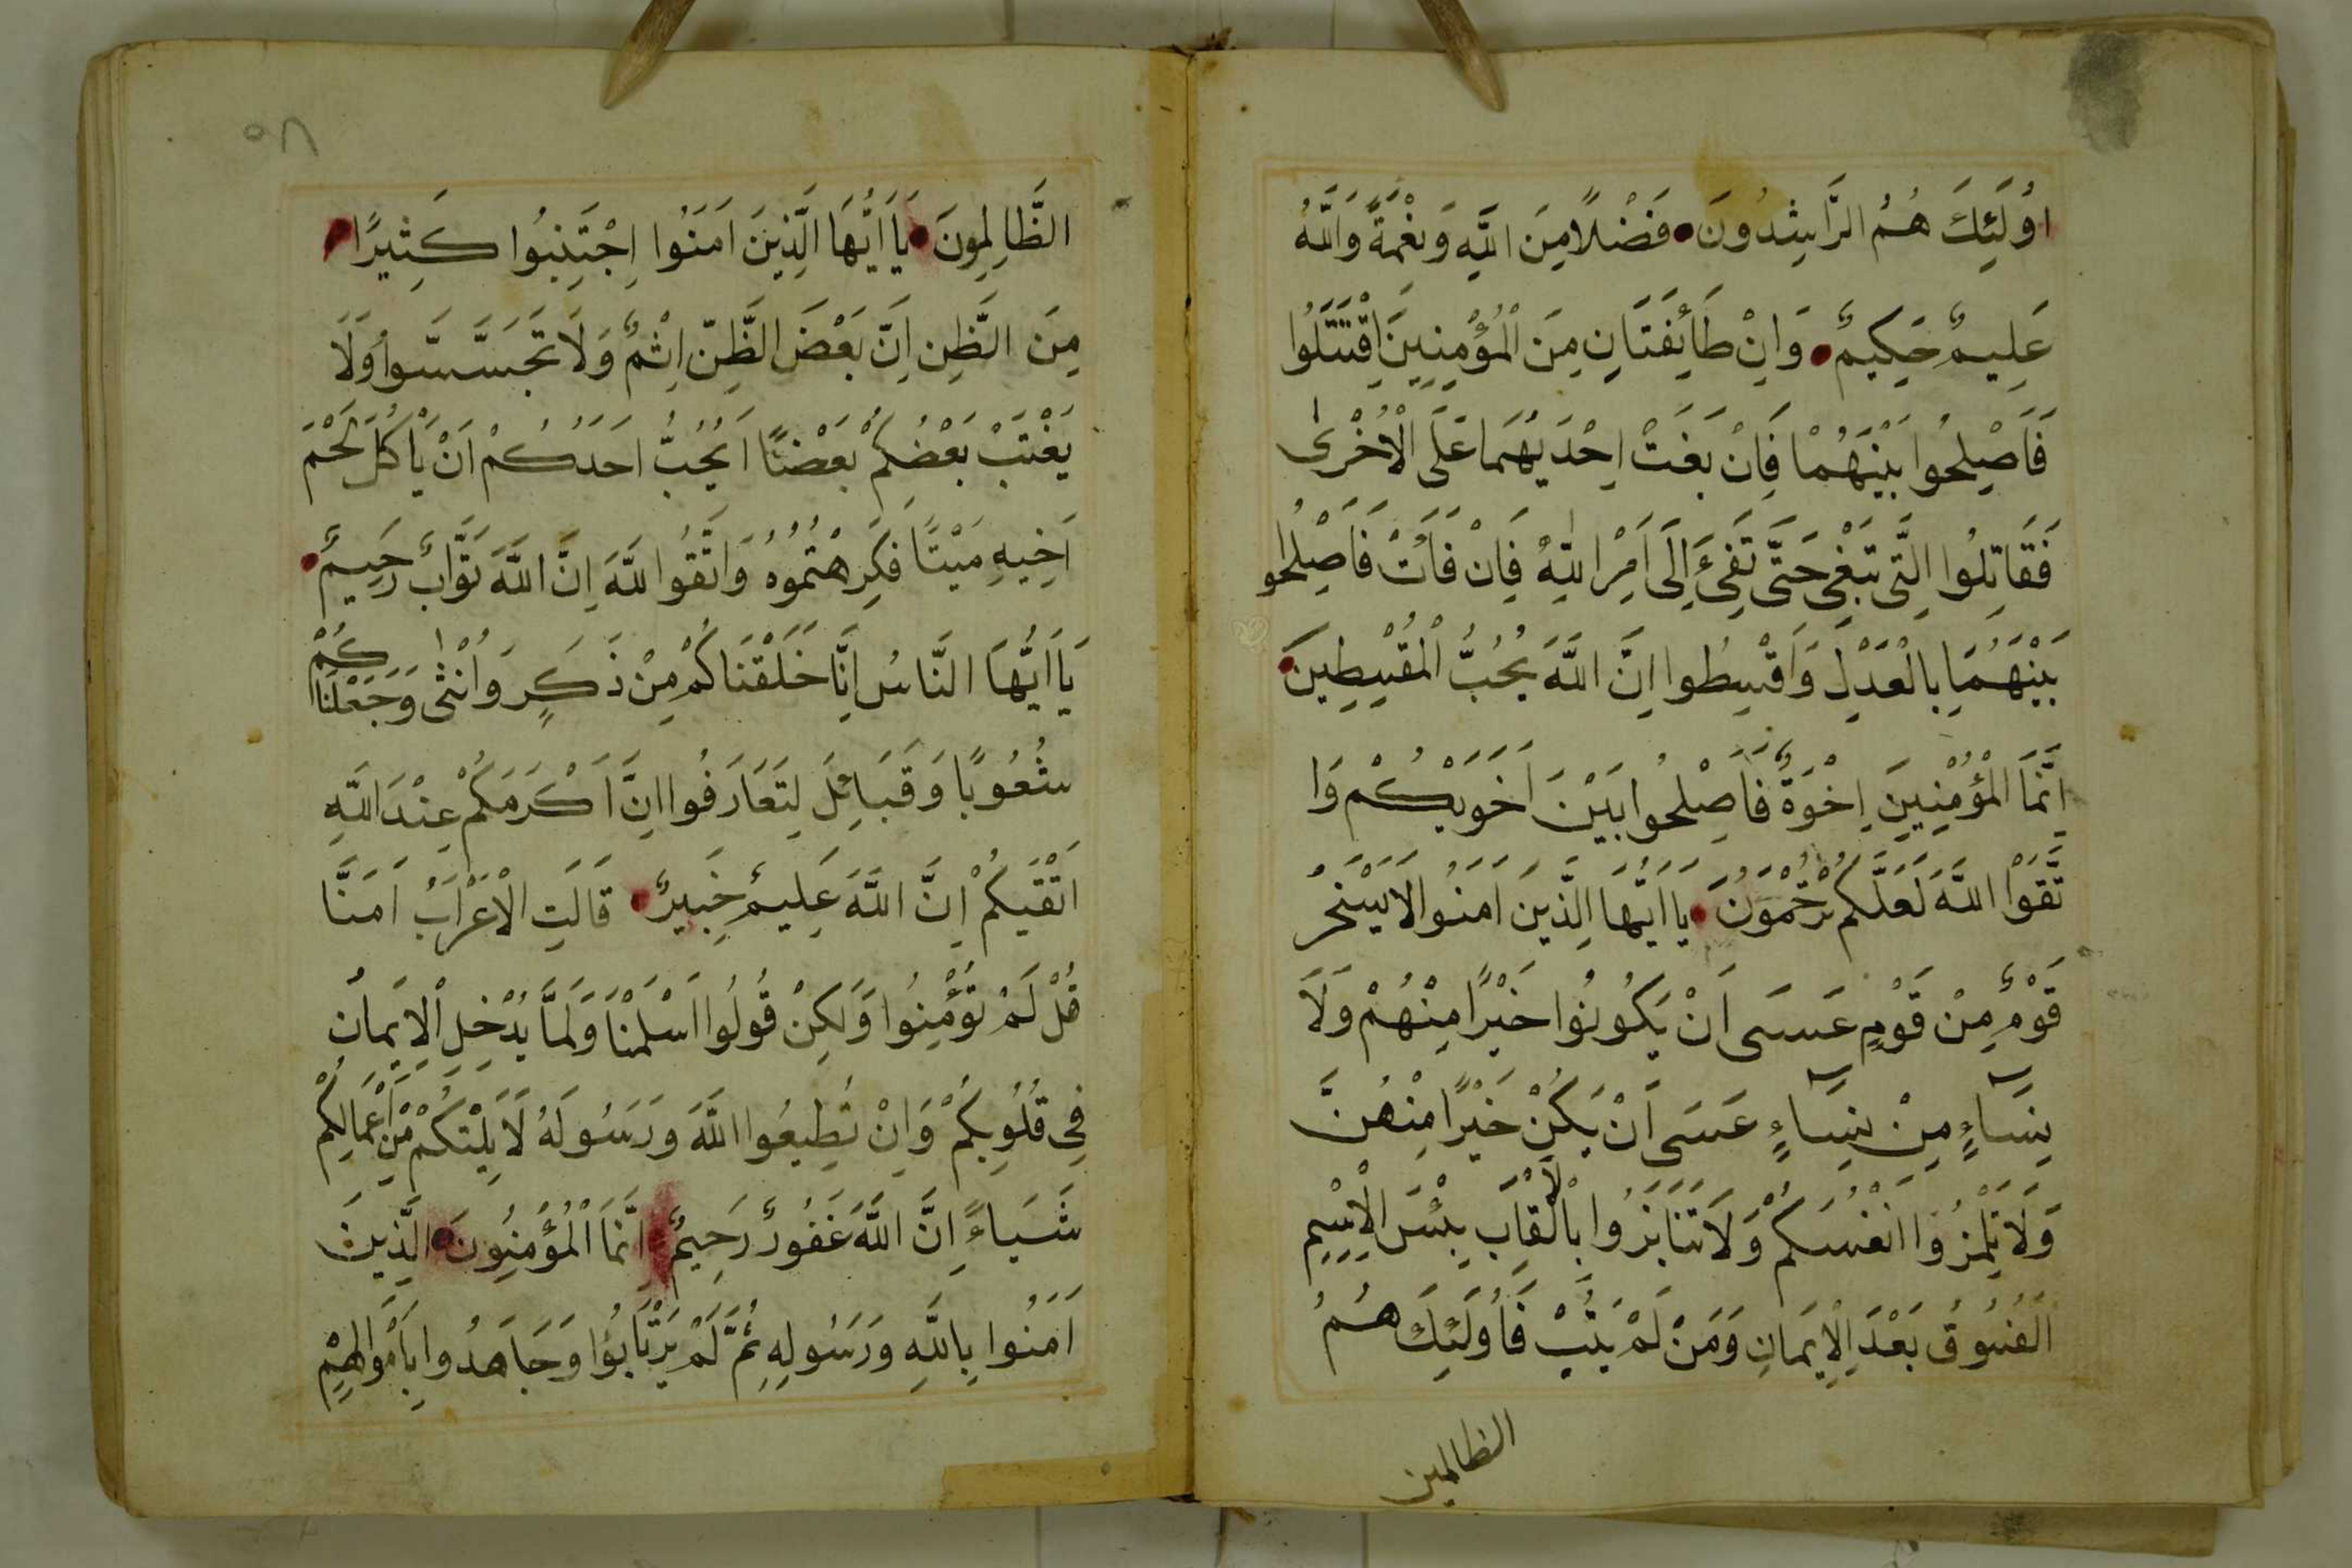 اُولَئِكَ هُمُ الرَّاشِدُونَ فَضْلًا مِنَ اللَّهِ وَنِعْمَةً وَاللَّهُ
عَلِيمٌ حَكِيمٌ وَاِنْ طَائِفَتَانِ مِنَ الْمُؤْمِنِينَ اقْتَتَلُوا
فَاَصْلِحُوا بَيْنَهُمَا فَاِنْ بَغَتْ اِحْدَيهُمَا عَلَى الْاُخْرٰى
فَقَاتِلُوا الَّتِى تَبْغِى حَتَّى تَفِىءَ اِلَى اَمْرِ اللّٰهِ فَاِنْ فَاءَتْ فَاَصْلِحُوا
بَيْنَهُمَا بِالْعَدْلِ وَاَقْسِطُوا اِنَّ اللَّهَ يُحِبُّ الْمُقْسِطِينَ
اِنَّمَا الْمُؤْمِنِينَ اِخْوَةٌ فَاَصْلِحُوا بَيْنَ اَخَوَيْكُمْ وَا
تَّقَوْا اللَّهَ لَعَلَّكُمْ تُرْحَمُونَ يَا اَيُّهَا الَّذِينَ اَمَنُوا لَا يَسْخَرْ
قَوْمٌ مِنْ قَوْمٍ عَسَى اَنْ يَكُونُوا خَيْرًا مِنْهُمْ وَلَا
نِسَاءٍ مِنْ نِسَاءٍ عَسَى اَنْ يَكُنْ خَيْرًا مِنْهُنَّ
وَلَا تَلْمِزُوا اَنْفُسَكُمْ وَلَا تَنَابَزُوا بِالْاَلْقَابِ بِئْسَ الْاِسْمِ
الْفُسُوقُ بَعْدَ الْاِيمَانِ وَمَنْ لَمْ يَتُبْ فَاُولَئِكَ هُمُ
الظالمين
٥٨
الظَّالِمُونَ يَا اَيُّهَا الَّذِينَ اَمَنُوا اِجْتَنِبُوا كَثِيرًا
مِنَ الظَّنِ اِنَّ بَعْضَ الظَّنِّ اِثْمٌ وَلَا تَجَسَّسُوا وَلَا
يَغْتَبْ بَعْضُكُمْ بَعْضًا اَيُحِبُّ اَحَدُكُمْ اَنْ يَاْكُلَ لَحْمَ
اَخِيهِ مَيْتًا فَكَرِهْتُمُوهُ وَاتَّقُوا للَّهَ اِنَّ اللَّهَ تَوَّابٌ رَحِيمٌ
يَا اَيُّهَا النَّاسُ اِنَّا خَلَقْنَاكُمْ مِنْ ذَكَرٍ وَاُنْثٰى وَجَعَلْنَاكُمْ
شُعُوبًا وَقَبَائِلَ لِتَعَارَفُوا اِنَّ اَكْرَمَكُمْ عِنْدَ اللَّهِ
اَتْقَيكُمْ اِنَّ اللَّهَ عَلِيمٌ خَبِيرٌ قَالَتِ الْاَعْرَابُ اَمَنَّا
قُلْ لَمْ تُؤْمِنُوا وَلَكِنْ قُولُوا اَسْلَمْنَا وَلَمَّا يَدْخُلِ الْاِيمَانُ
فِى قُلُوبِكُمْ وَاِنْ تُطِيعُوا اللَّهَ وَرَسُولَهُ لَا يَلِتْكُمْ مِنْ اَعْمَالِكُمْ
شَيَاءً اِنَّ اللَّهَ غَفُورٌ رَحِيمٌ اِنَّمَا الْمُؤْمِنُونَ الَّذِينَ
اَمَنُوا بِاللَّهِ وَرَسُولِهِ ثُمَّ لَمْ يَرْتَابُؤا وَجَاهَدُوا بِاَمْوَالِهِمْ